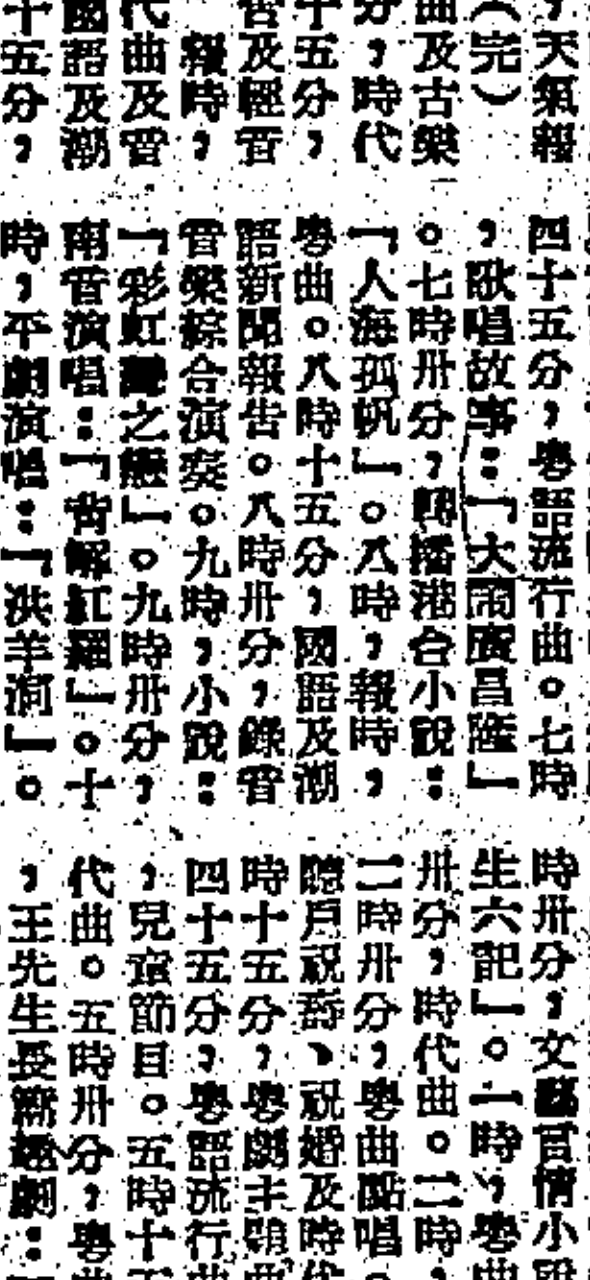 ，天氣報
（完）
曲及古樂
分，時代
十五分，
音及輕音
報時，
代曲及音
國語及潮
十五分，
四十五分，粵語流行曲。七時
，歌唱故事：「大鬧廣昌隆」
。七時卅分，轉播港台小說：
「人海孤帆」。八時，報時，
粵曲。八時十五分，國語及潮
語新聞報告。八時卅分，錄音
音樂綜合演奏。九時，小說：
「彩虹灣之戀」。九時卅分，
南音演唱：「背解紅羅」。十
時，平劇演唱：「洪羊洞」。
時卅分，文藝言情小說
生六記」。一時，粵曲
卅分，時代曲。二時，
二時卅分，粵曲點唱
聽戶祝壽、祝婚及時代
時十五分，粵劇主題曲
四十五分，粵語流行曲
，兒童節目。五時十五
代曲。五時卅分，粵曲
，王先生長篇趣劇：